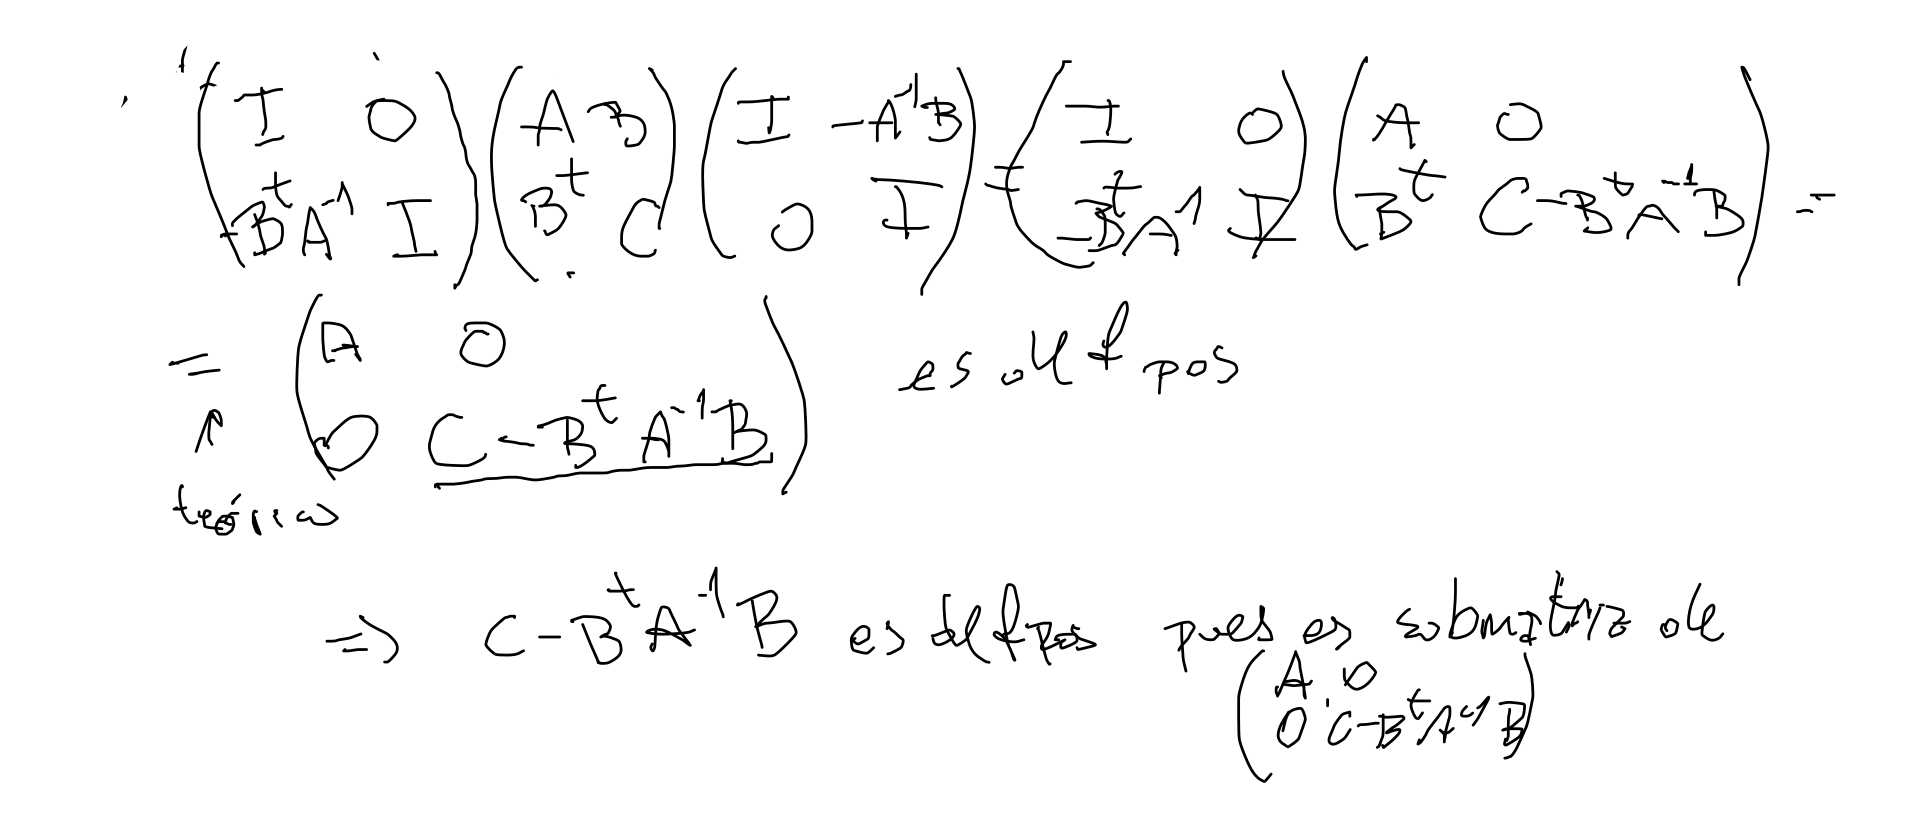 (I 0 ; -B^t A^-1 I) (A B ; B^t C) (I -A^-1 B ; 0 I) = (I 0 ; -B^t A^-1 I) (A 0 ; B^t C-B^t A^-1 B) =
= (A 0 ; 0 C-B^t A^-1 B) es def pos
↑
teórico
=> C-B^t A^-1 B es def pos pues es submatriz de
(A 0 ; 0 C-B^t A^-1 B)